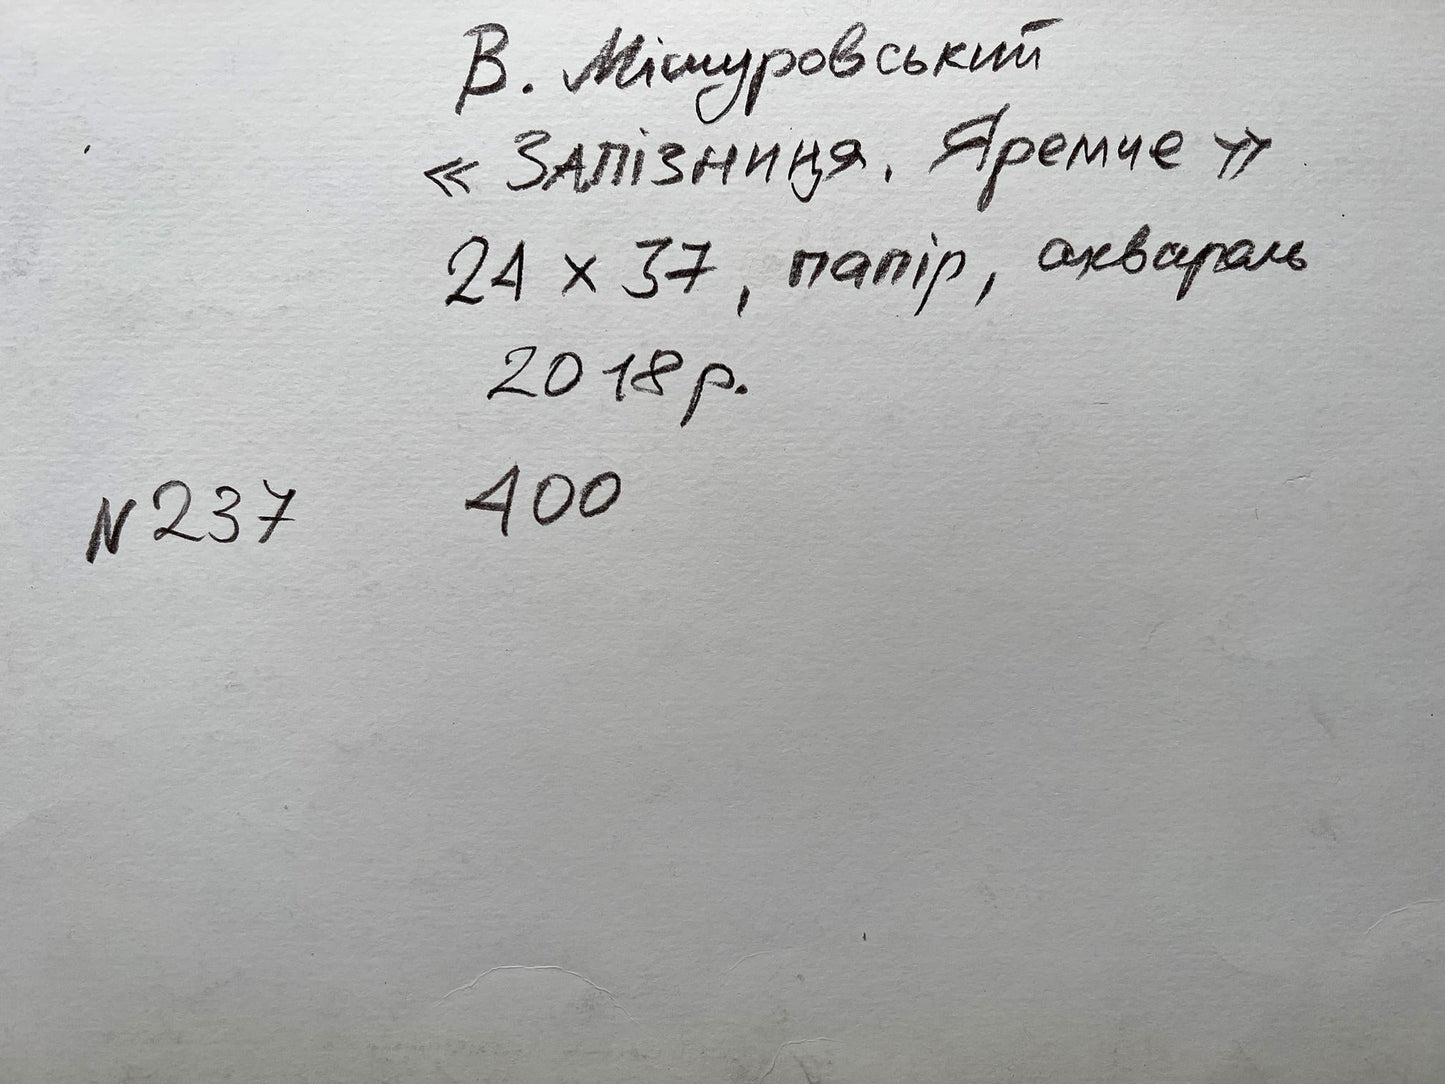 В. Мішуровський
« Залізниця. Яремче »
24 х 37, папір, акварель
2018 р.
N 237 400